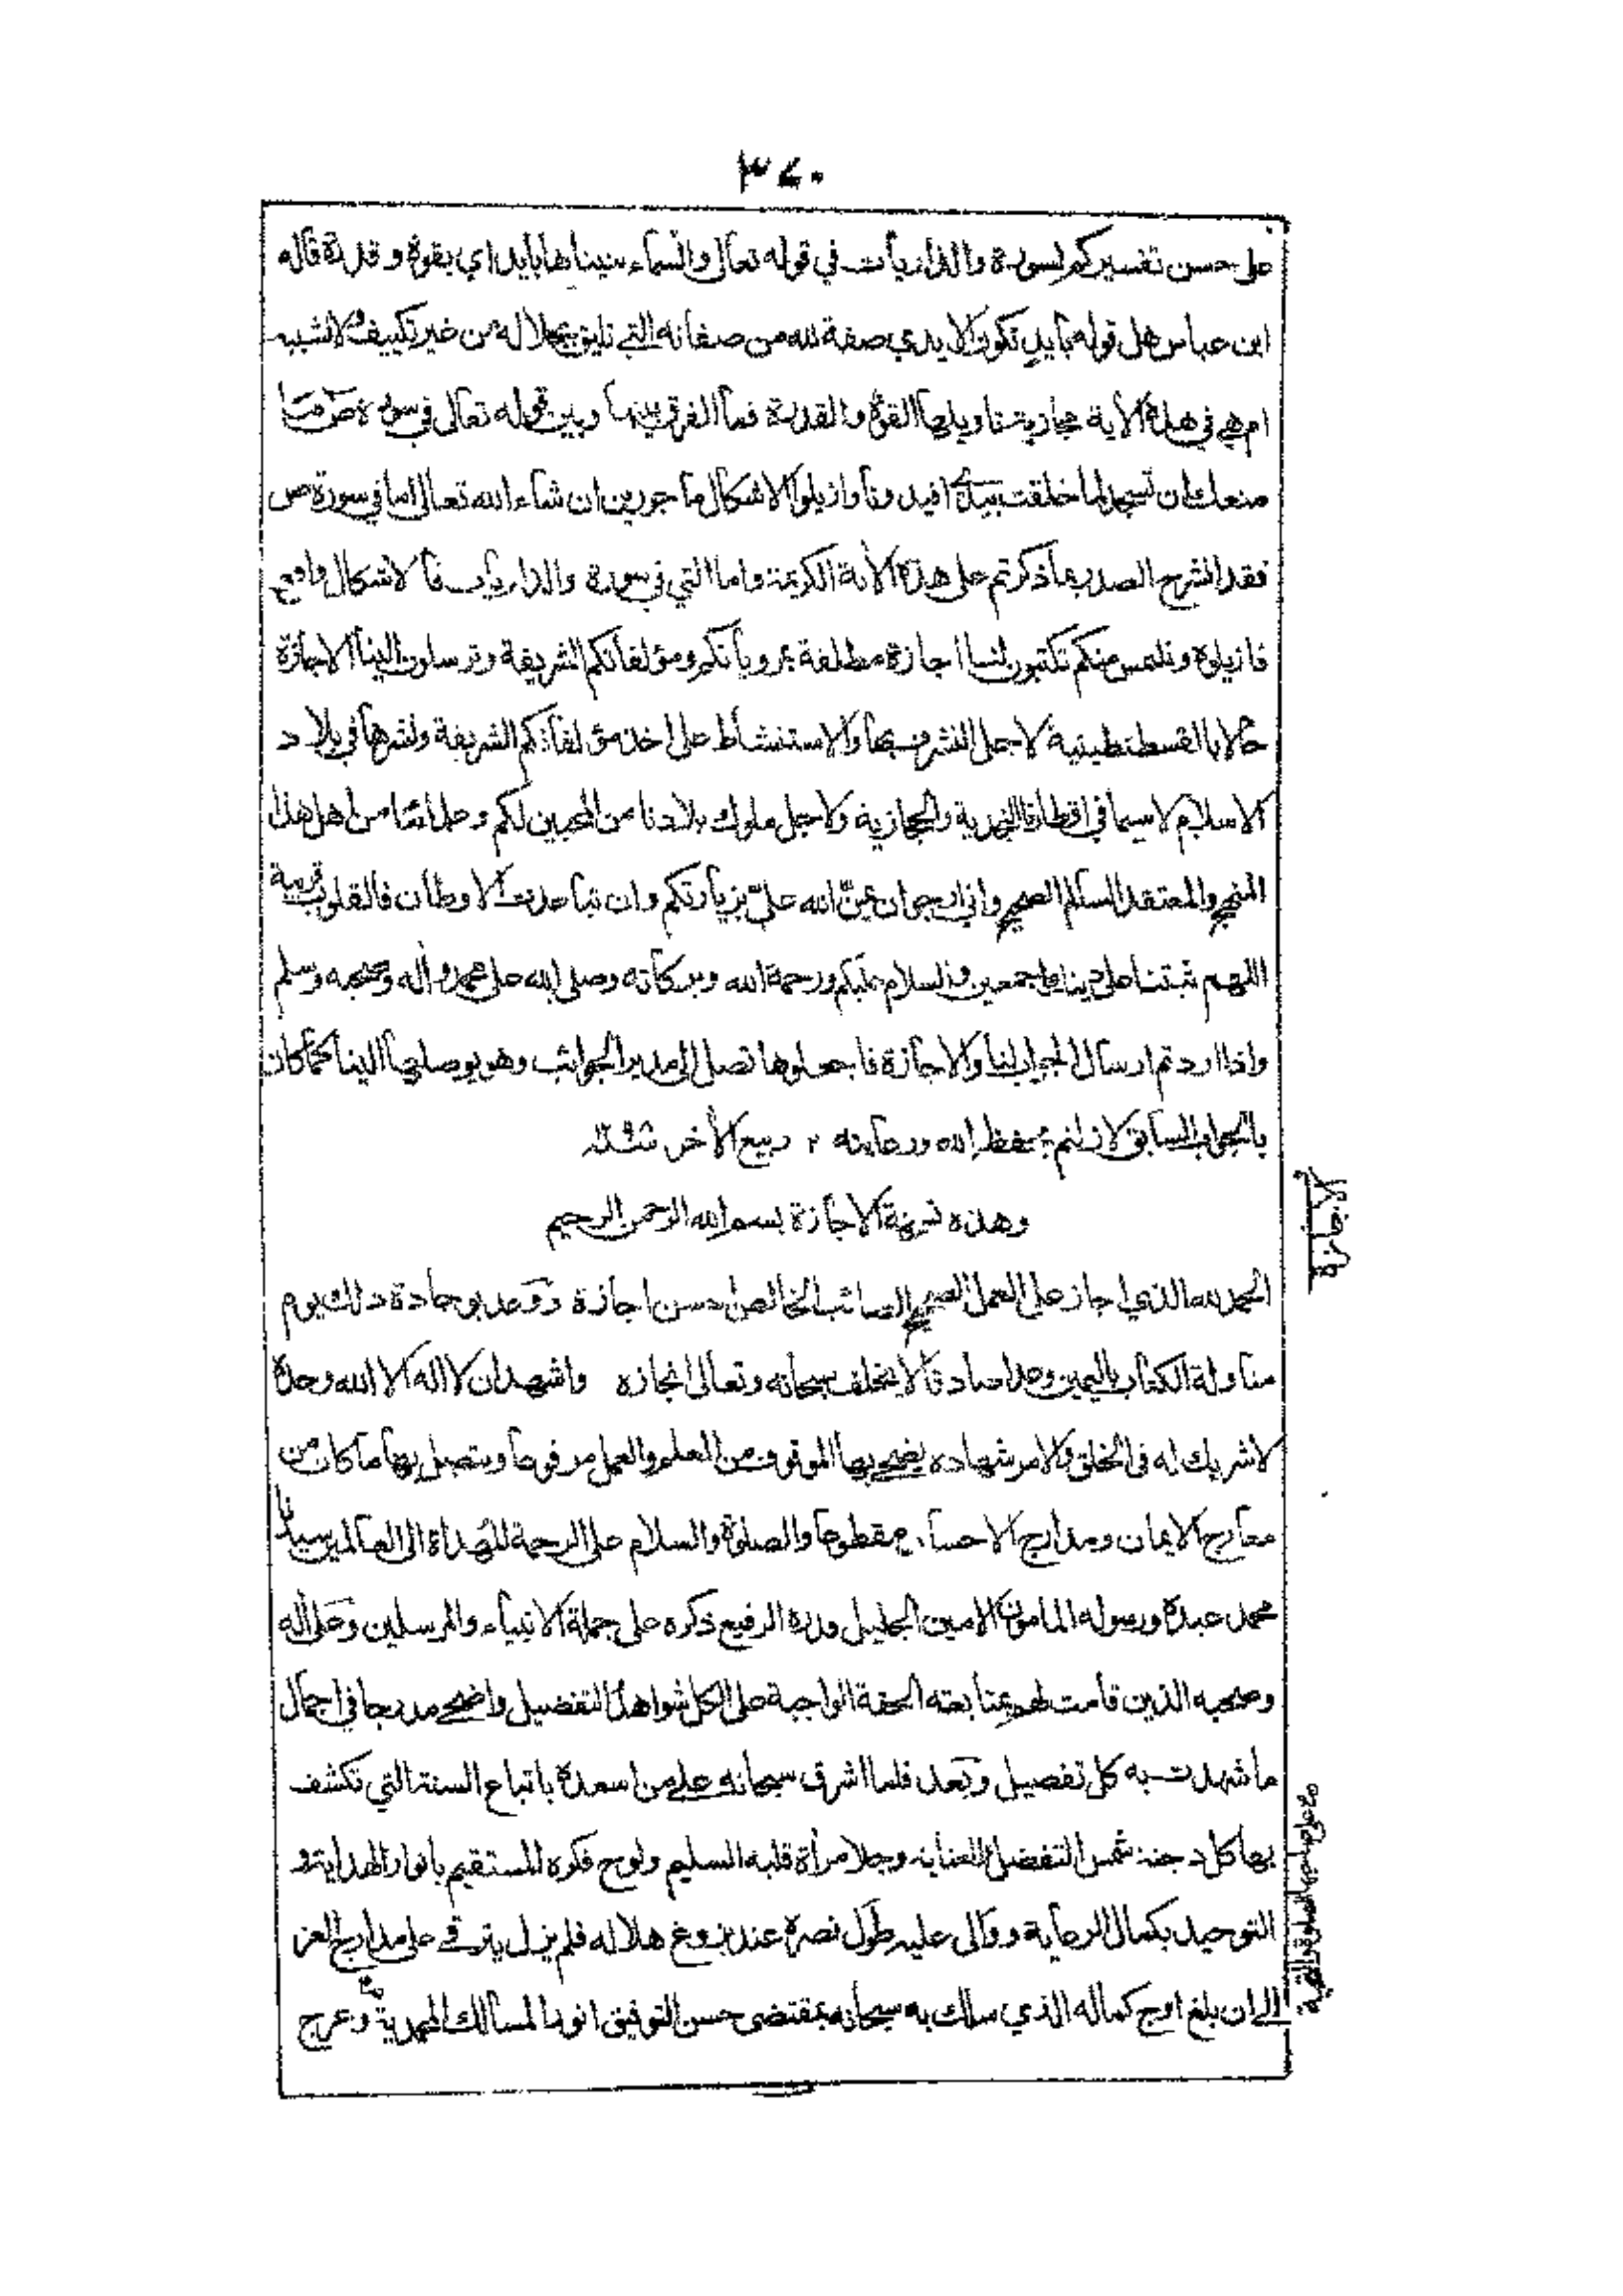 ٣٤٠
على حسن تفسيركم لسورة والذاريات في قوله تعالى والسماء بنيناها بايد اي بقوة وقدرة قاله
ابن عباس هل قوله بايد تكون الايدي صفة لله من صفاته التي تليق بجلاله من غير تكييف ولا تشبيه
ام هي في هذه الاية مجازية تاويلها القوة والقدرة فما الفرق بينها وبين قوله تعالى في سورة ص ما
منعك ان تسجد لما خلقت بيدي افيدونا وازيلوا الاشكال ماجورين ان شاء الله تعالى اما في سورة ص
فقد انشرح الصدر بما ذكرتم على هذه الاية الكريمة واما التي في سورة والذاريات فالاشكال واقع
فازيلوه ونلتمس منكم تكتبون لنا اجازة مطلقة بمروياتكم ومؤلفاتكم الشريفة وترسلون الينا الاجازة
حالا بالقسطنطينية لاجل التشرف بها والاستنشاط على اخذ مؤلفاتكم الشريفة ونشرها في بلاد
الاسلام لاسيما في اقطارنا النجدية والحجازية ولاجل ملوك بلادنا من المحبين لكم وعلمائنا من اهل هذا
المنهج والمعتقد السالم الصحيح واني ارجو ان يمن الله علي بزيارتكم وان تباعدت الاوطان فالقلوب قريبة
اللهم ثبتنا على ديننا اجمعين والسلام عليكم ورحمة الله وبركاته وصلى الله على محمد واله وصحبه وسلم
واذا اردتم ارسال الجواب لنا والاجازة فاجعلوها تصل الى مدير الجوائب وهو يوصلها الينا كما كان
بالجواب السابق لازلتم بحفظ الله ورعايته ٢ ربيع الاخر
وهذه نسخة الاجازة بسم الله الرحمن الرحيم
الحمد لله الذي اجاز على العمل الصحيح الصائب الخالص احسن اجازة ووعد بوجادة ذلك يوم
مناولة الكتاب باليمين وعدا صادقا لا يخلف سبحانه وتعالى انجازه واشهد ان لا اله الا الله وحده
لا شريك له في الخلق والامر شهادة يضحي بها الموقوف من العلم والعمل مرفوعا ويتصل بها ما كان من
معارج الايمان ومدارج الاحسان مقطوعا والصلوة والسلام على الرحمة المهداة الى العالمين سيدنا
محمد عبده ورسوله المامون الامين الجليل قدره الرفيع ذكره على جملة الانبياء والمرسلين وعلى اله
وصحبه الذين قامت لهم بمتابعته الحقة الواجبة على الكل شواهد التفضيل واضحى مندرجا في اجمال
ما شهدت به كل تفصيل وبعد فلما اشرق سبحانه على من اسعده باتباع السنة التي تكشف
بها كل دجنة شمس التفضل والعناية وجلا مرأة قلبه السليم ولوح فكره المستقيم بانوار الهداية و
التوحيد بكمال الرعاية ووالى عليه طول نصره عند بزوغ هلاله فلم يزل يترقى على مدارج العز
الى ان بلغ اوج كماله الذي سلك به سبحانه بمقتضى حسن التوفيق انور المسالك المحمدية وعرج